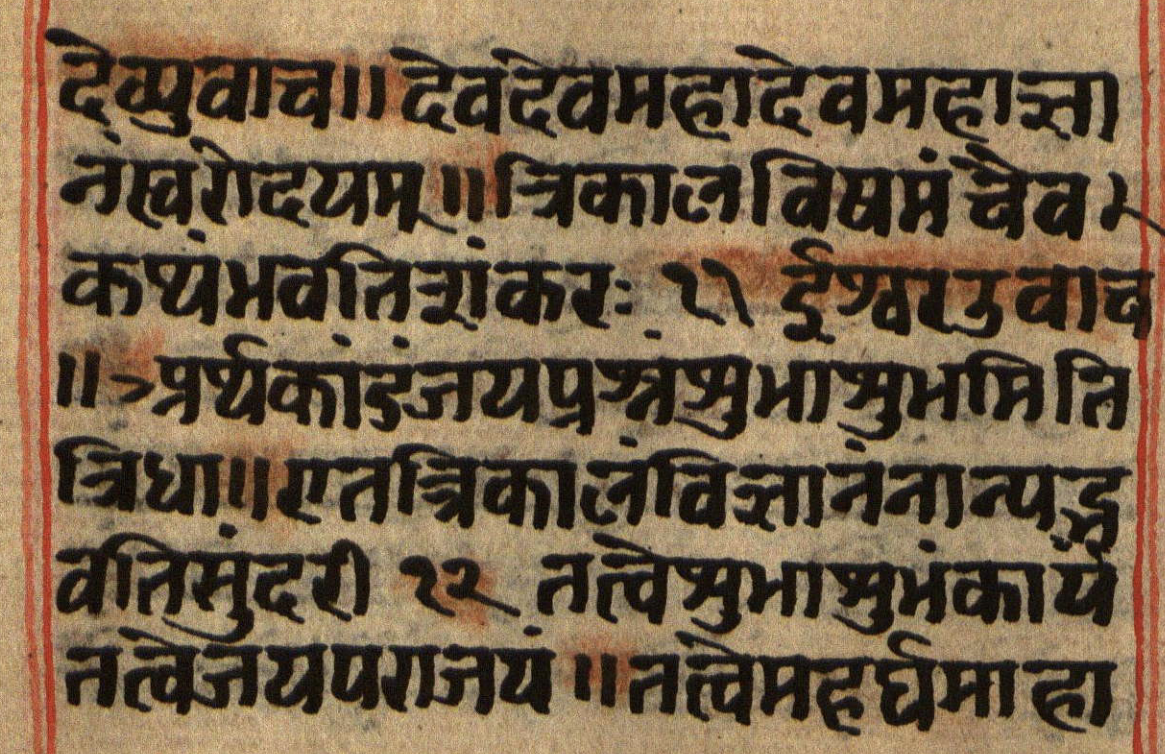 देव्युवाच॥ देवदेवमहादेवमहाज्ञा
नंस्वरोदयम्॥ त्रिकालविषमं चैव
कथंभवतिशंकरः ११ ईश्वरउवाच
॥ अर्थकांडंजयप्रश्नंशुभाशुभमिति
त्रिधा॥ एतत्रिकालंविज्ञानंनान्यद्भ
वतिसुंदरी १२ तत्वेशुभाशुभंकार्यं
तत्वेजयपराजयं॥ तत्वेमहर्घमाहा